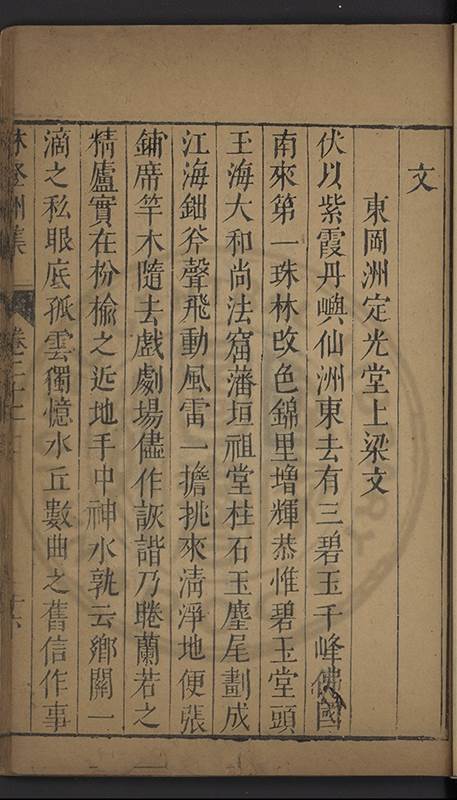 文
東岡洲定光堂上梁文
伏以紫霞丹嶼仙洲東去有三碧玉千峰佛國
南來第一珠林改色錦里增輝恭惟碧玉堂頭
玉海大和尚法窟藩垣祖堂柱石玉麈尾劃成
江海鈯斧聲飛動風雷一擔挑來淸淨地便張
鋪席竿木隨去戲劇場儘作詼諧乃睠蘭若之
精廬實在枌榆之近地手中神水孰云鄉關一
滴之私眼底孤雲獨憶水丘數曲之舊信作事
林登州集
卷二十二